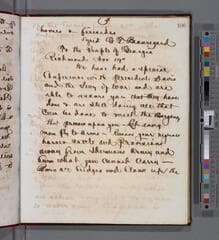 100
Signed G. T. Beauregard
To the People of Georgia
Richmond Nov 19th
We have had a special
Conference with President Davis
and the Secy of War and are
able to assure you that they have
done & are still doing all that
can be done to meet the Emergency
that presses upon you. Let every
man fly to arms. Remove your negroes
horses cattle and Provisions
away from Shermans Army and
burn what you cannot carry —
burn all bridges and block up the